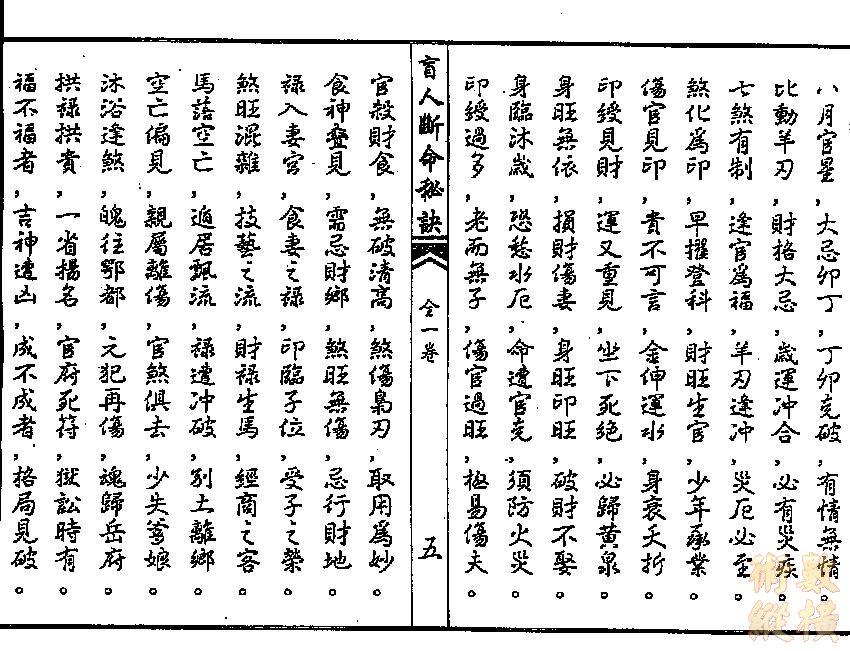 八月官星,大忌卯丁,丁卯克破,有情無情。
比動羊刃,財格大忌,歲運冲合,必有災疾。
七煞有制,逢官爲福,羊刃逢冲,災厄必至。
煞化爲印,早擢登科,財旺生官,少年承業。
傷官見印,貴不可言,金伸運水,身衰夭折。
印綬見財,運又重見,坐下死絕,必歸黄泉。
身旺無依,損財傷妻,身旺印旺,破財不娶。
身臨沐歲,恐愁水厄,命遭官克,須防火災。
印綬過多,老而無子,傷官過旺,極易傷夫。
盲人斷命秘訣
全一卷
五
官殺財食,無破清高,煞傷梟刃,取用爲妙。
食神叠見,需忌財鄉,煞旺無傷,忌行財地。
禄入妻宮,食妻之禄,印臨子位,受子之榮。
煞旺混雜,技藝之流,財禄生馬,經商之客。
馬落空亡,遁居飄流,禄遭冲破,别土離鄉。
空亡偏見,親屬離傷,官煞俱去,少失爹娘。
沐浴逢煞,魄往鄂都,元犯再傷,魂歸岳府。
拱禄拱貴,一省揚名,官府死符,獄訟時有。
福不福者,吉神遭凶,成不成者,格局見破。
數術縱橫